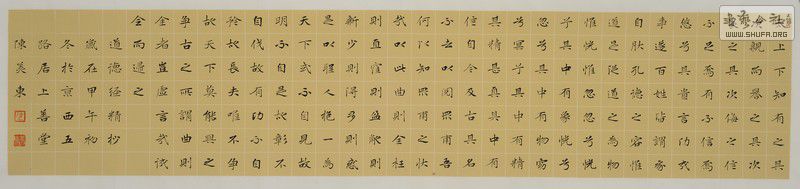 太上下知有之其
次親而譽之其次
畏之其次侮之信
不足焉有不信焉
悠兮其貴言功成
事遂百姓皆謂我
自然孔德之容惟
道是從道之為物
惟恍惟忽忽兮恍
兮其中有象恍兮
忽兮其中有物窈
兮冥兮其中有精
其精甚真其中有
信自今及古其名
不去以閱眾甫吾
何以知眾甫之狀
哉以此曲則全枉
則直窪則盈敝則
新少則得多則惑
是以聖人抱一為
天下式不自見故
明不自是故彰不
自伐故有功不自
矜故長夫唯不爭
故天下莫能與之
爭古之所謂曲則
全者豈虛言哉誠
全而歸之
道德經精抄
歲在甲午初
冬於京西五
路居上善堂
陳英東
WWW.SHUFA.ORG